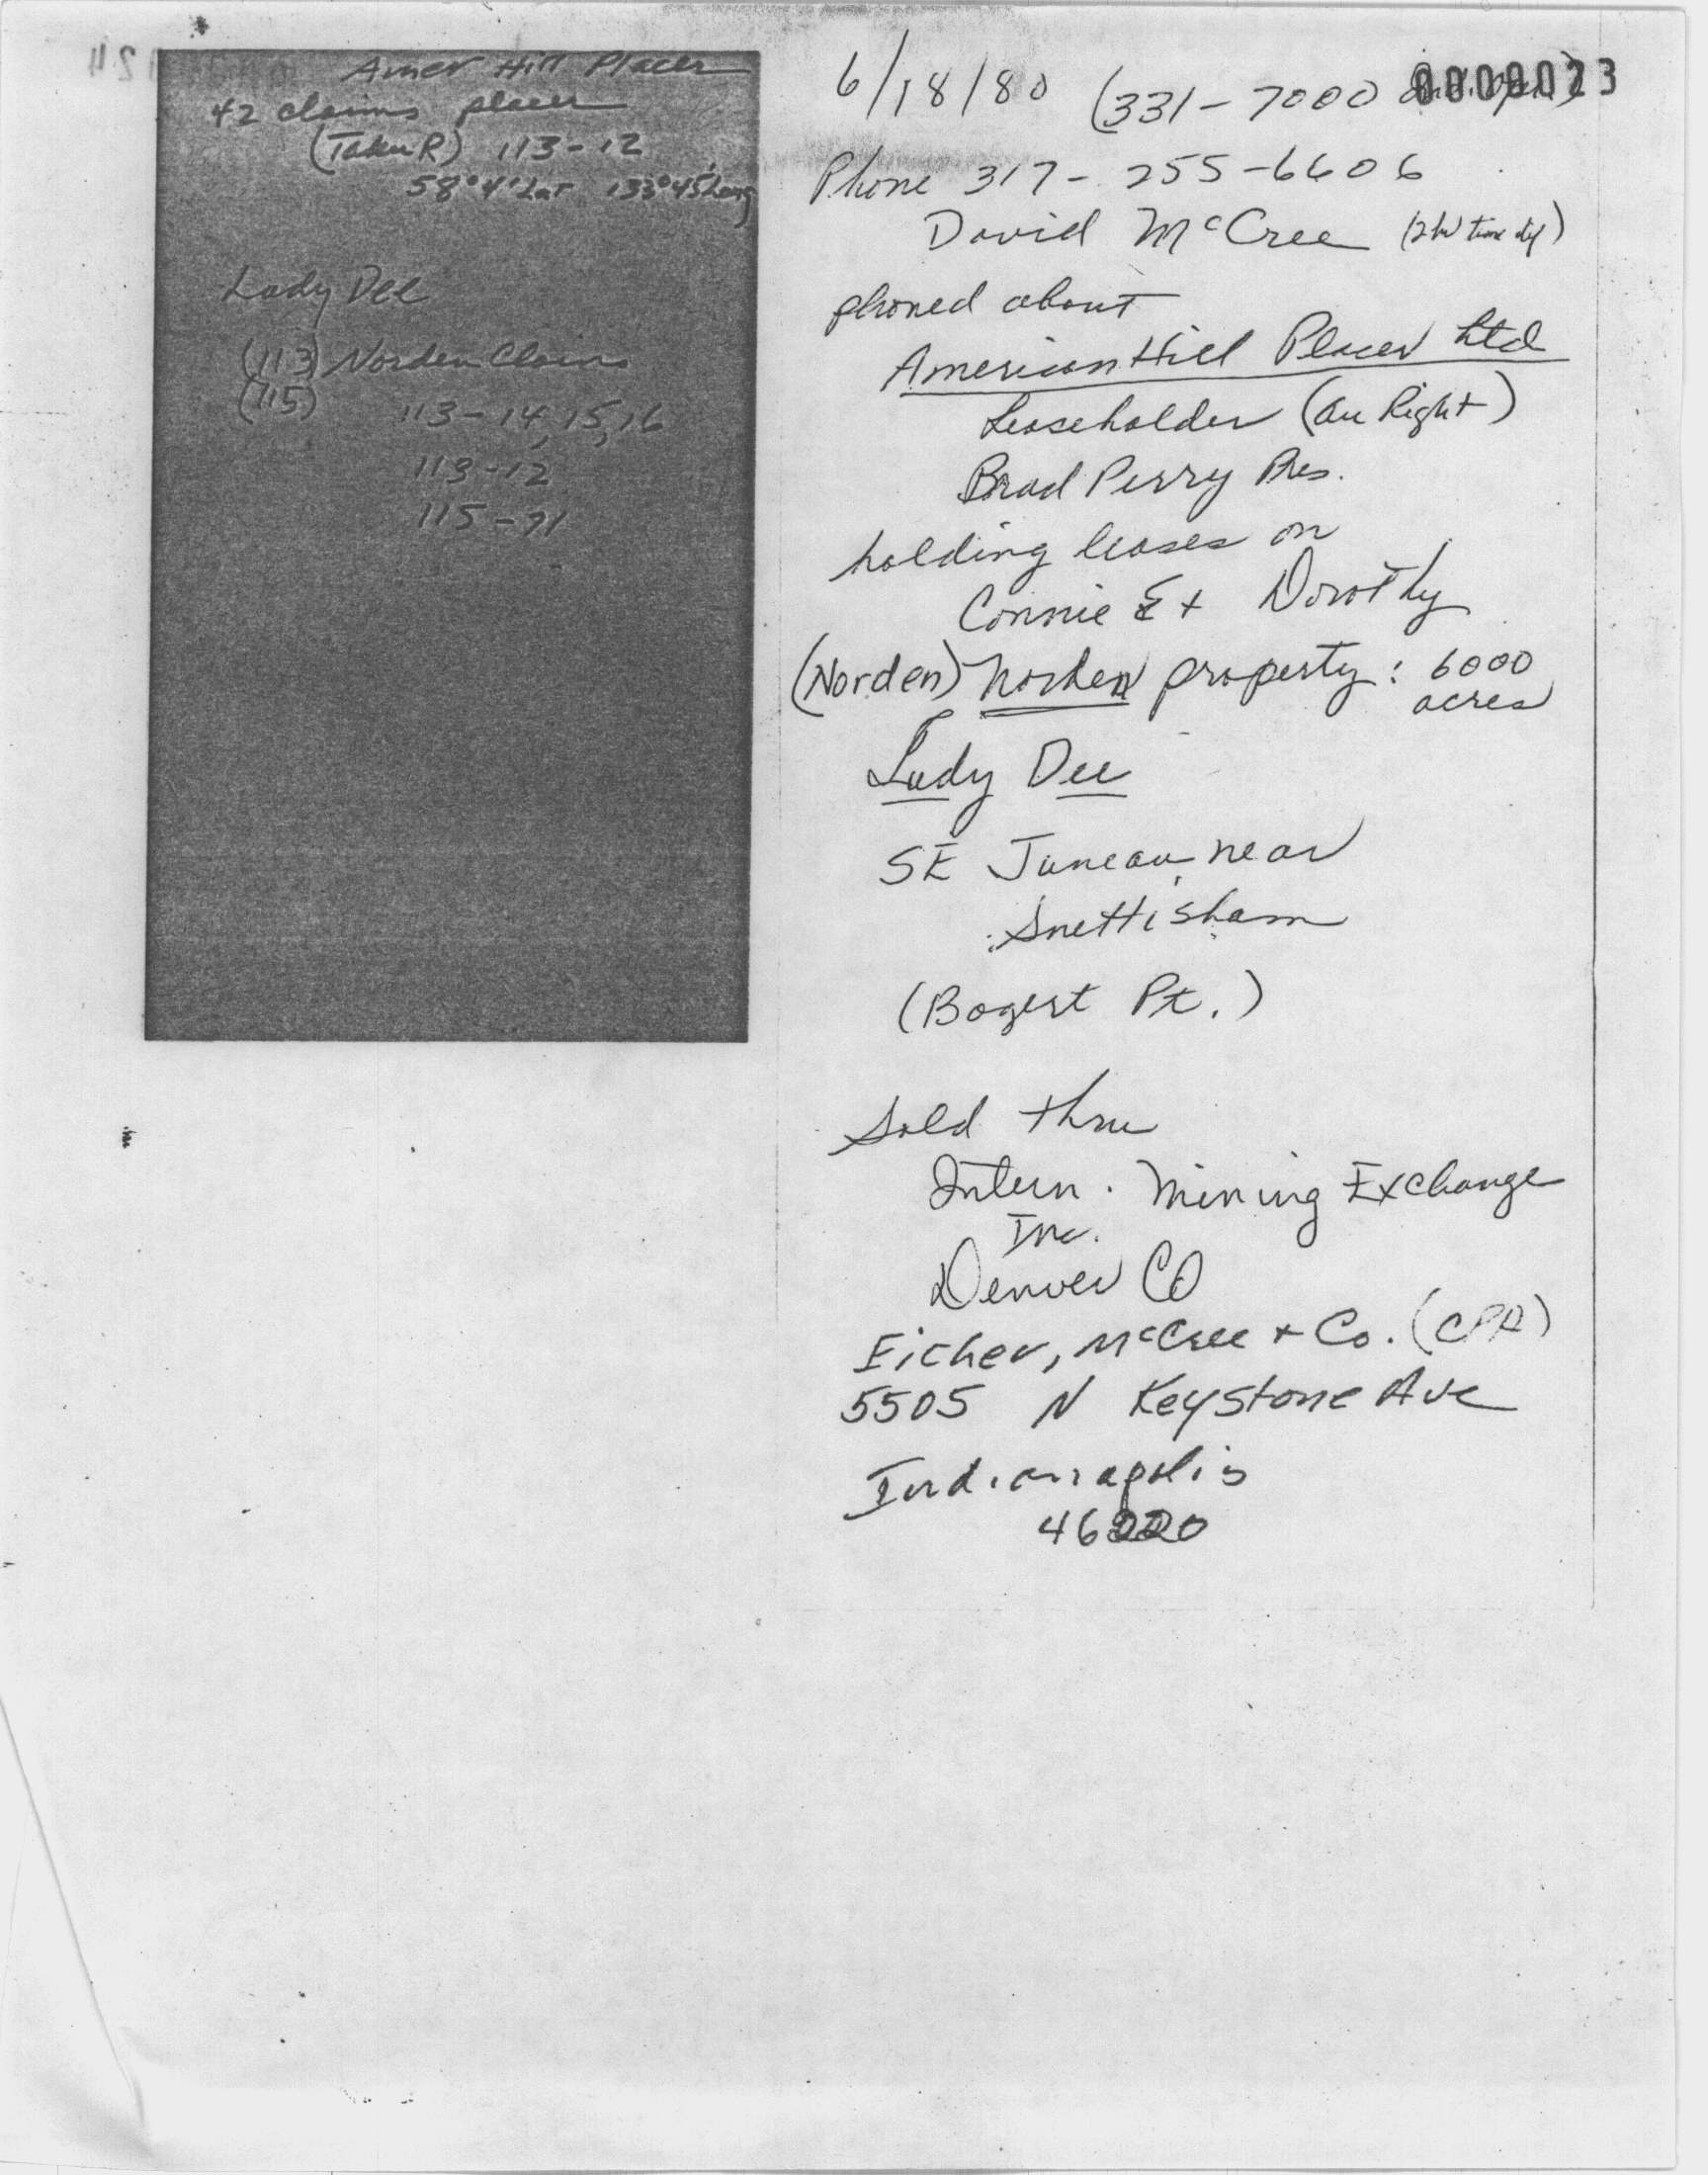 Amer Hill Placer
42 claims placer
(Taku R) 113-12
58°4' Lat 133°45' Long
Lady Dee
(113) Norden Claims
(115)
113-14, 15, 16
113-12
115-71
6/18/80 (331-7000
0000023
Phone 317-255-6606
David McCree (2 hr time dif)
phoned about
American Hill Placer Ltd
Leaseholder (Au Right)
Brad Perry Pres.
holding leases on
Connie E + Dorothy
(Norden) Norden property: 6000
acres
Lady Dee
SE Juneau near
Snettisham
(Bogert Pt.)
Sold thru
Intern. Mining Exchange
Inc.
Denver CO
Eicher, McCree + Co. (CPA)
5505 N Keystone Ave
Indianapolis
46220